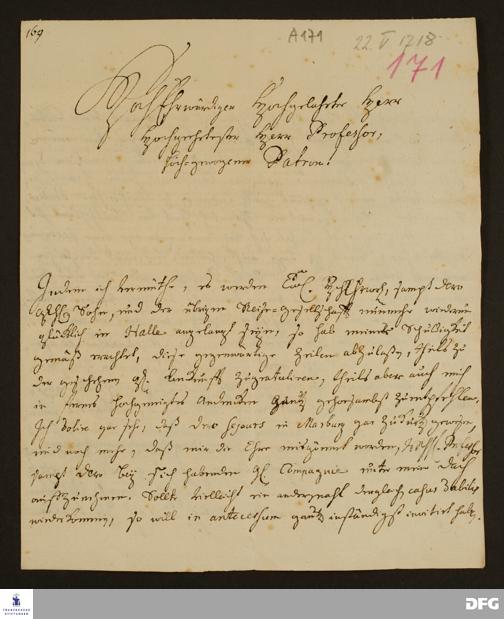 169
A171
22 V 1718
171
HochEhrwürdiger Hochgelahrter Herr
Hochgeehrtester Herr Professor,
Hochgewogener Patron!
Indem ich vermuthe, es werden Ew. HochEhrwd, sampt dero
Sohn, und der übrigen Reise-gesellschafft nunmehr wiederum
glücklich in Halle angelangt seyn, so hab meiner Schuldigkeit
gemäß erachtet, diese gegenwärtige Zeilen abzulaßen, theils zu
der geschehenen Ankunfft zugratuliren, theils aber auch mich
in ferners hochgeneigtes Andencken gantz gehorsambst zu empfehlen.
Ich daß der Sejour in Marburg gar zu kurtz gewesen,
und noch mehr, daß mir die Ehre mißgönnet worden,
sampt dero bey sich habenden Compagnie unter mein Dach
auffzunehmen. Sollte vielleicht ein andermahl dergleichen casus
wiederkommen, so will in antecessum gantz inständigst invitiret haben.
FRANCKESCHE STIFTUNGEN
DFG